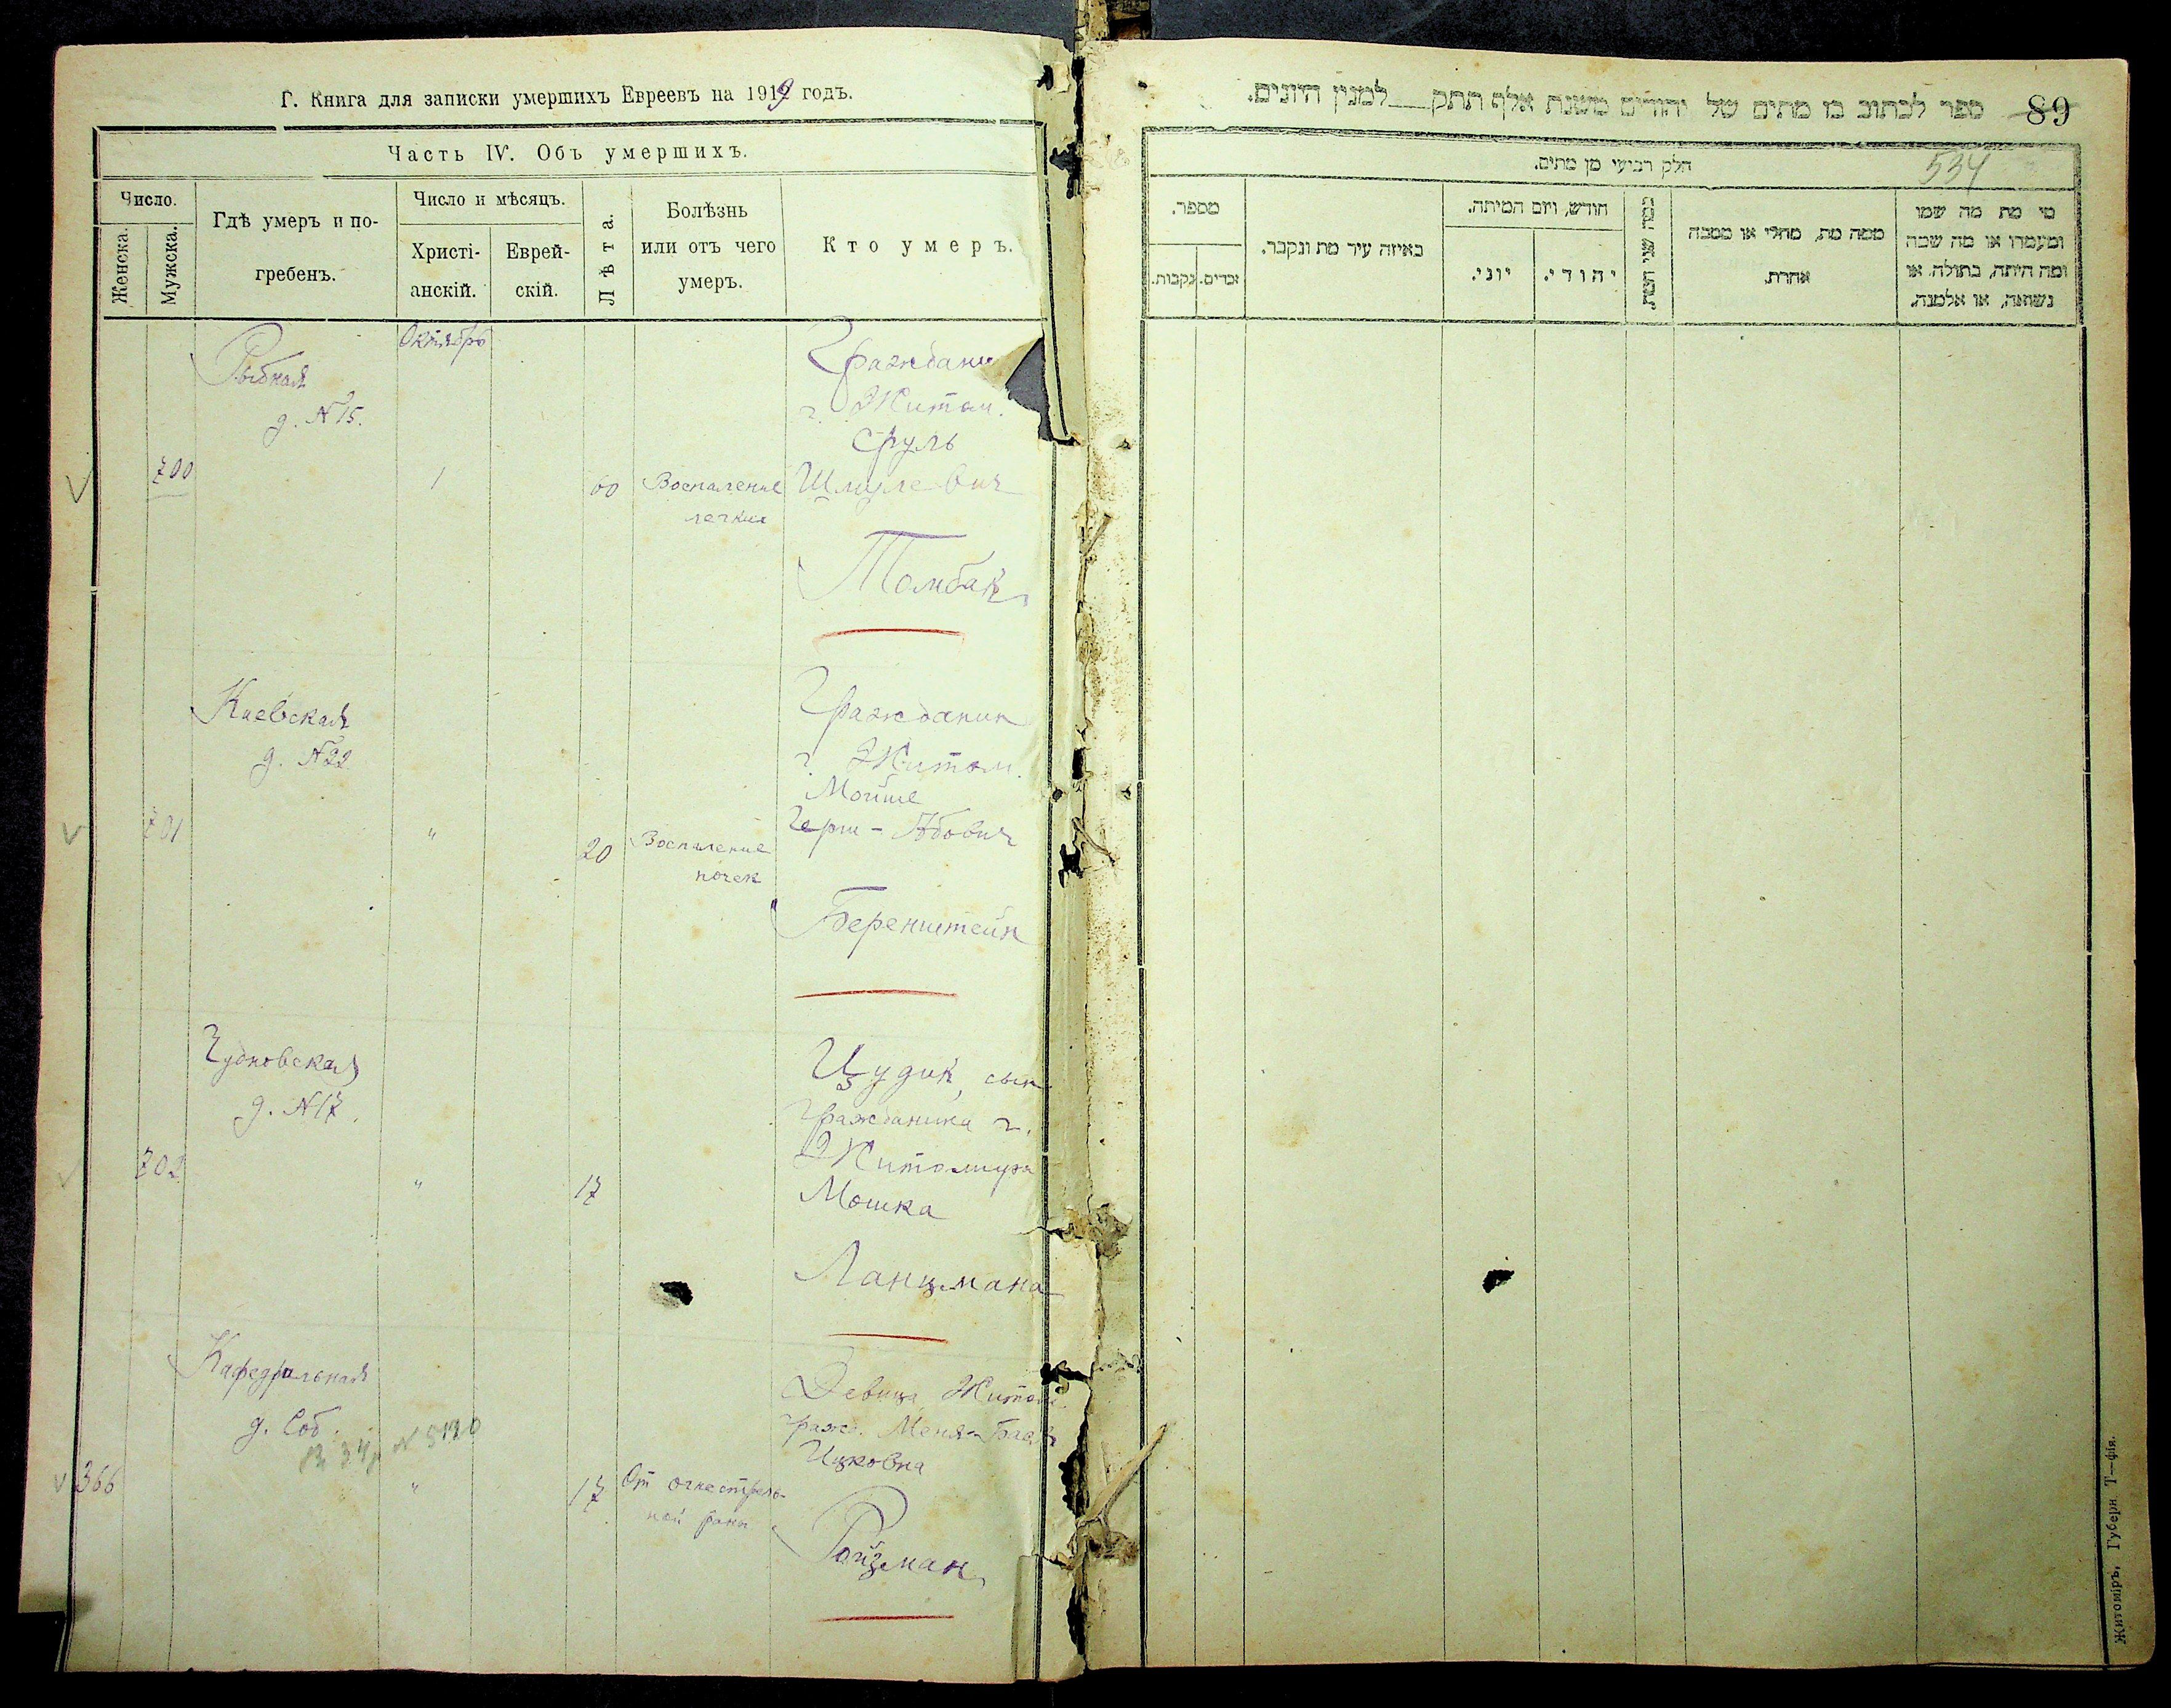 Г. Книга для записки умершихъ Евреевъ на 1919 годъ.
Часть IV. Объ умершихъ.
Число.
Женска.
Мужска.
Гдѣ умеръ и по-
гребенъ.
Число и мѣсяцъ.
Христі-
анскій.
Еврей-
скій.
Лѣта.
Болѣзнь
или отъ чего
умеръ.
Кто умеръ.
Октябрь
Рыбная
д. № 15.
700
1
60
Воспаление
легких
Граждани
г. Житом.
Сруль
Шмулевич
Томбак
Киевская
д. № 22
701
"
20
Воспаление
почек
Гражданин
г. Житом.
Мойше
Герш-
Беренштейн
Чудновская
д. № 17.
702
"
17
сын
Гражданина г.
Житомира
Мошка
Ланцмана
Кафедральная
д. Соб.
№ 5120
366
"
17
От огнестрель-
ной раны
Девица Житом.
гражд. Меня-
Ицковна
Ройзман
ספר לכתוב בו מתים של יהודים משנת אלף תתק למנין היונים.
89
534
חלק רביעי מן מתים.
מספר.
נקבות.
זכרים.
באיזה עיר מת ונקבר.
חודש, ויום המיתה.
יוני.
יהודי.
כמה שני חייו.
ממה מת, מחלי או מסבה
אחרת.
מי מת מה שמו
ומעמדו או מה שמה
ומה היתה, בתולה או
נשואה, או אלמנה.
Житоміръ, Губерн. Т—фія.